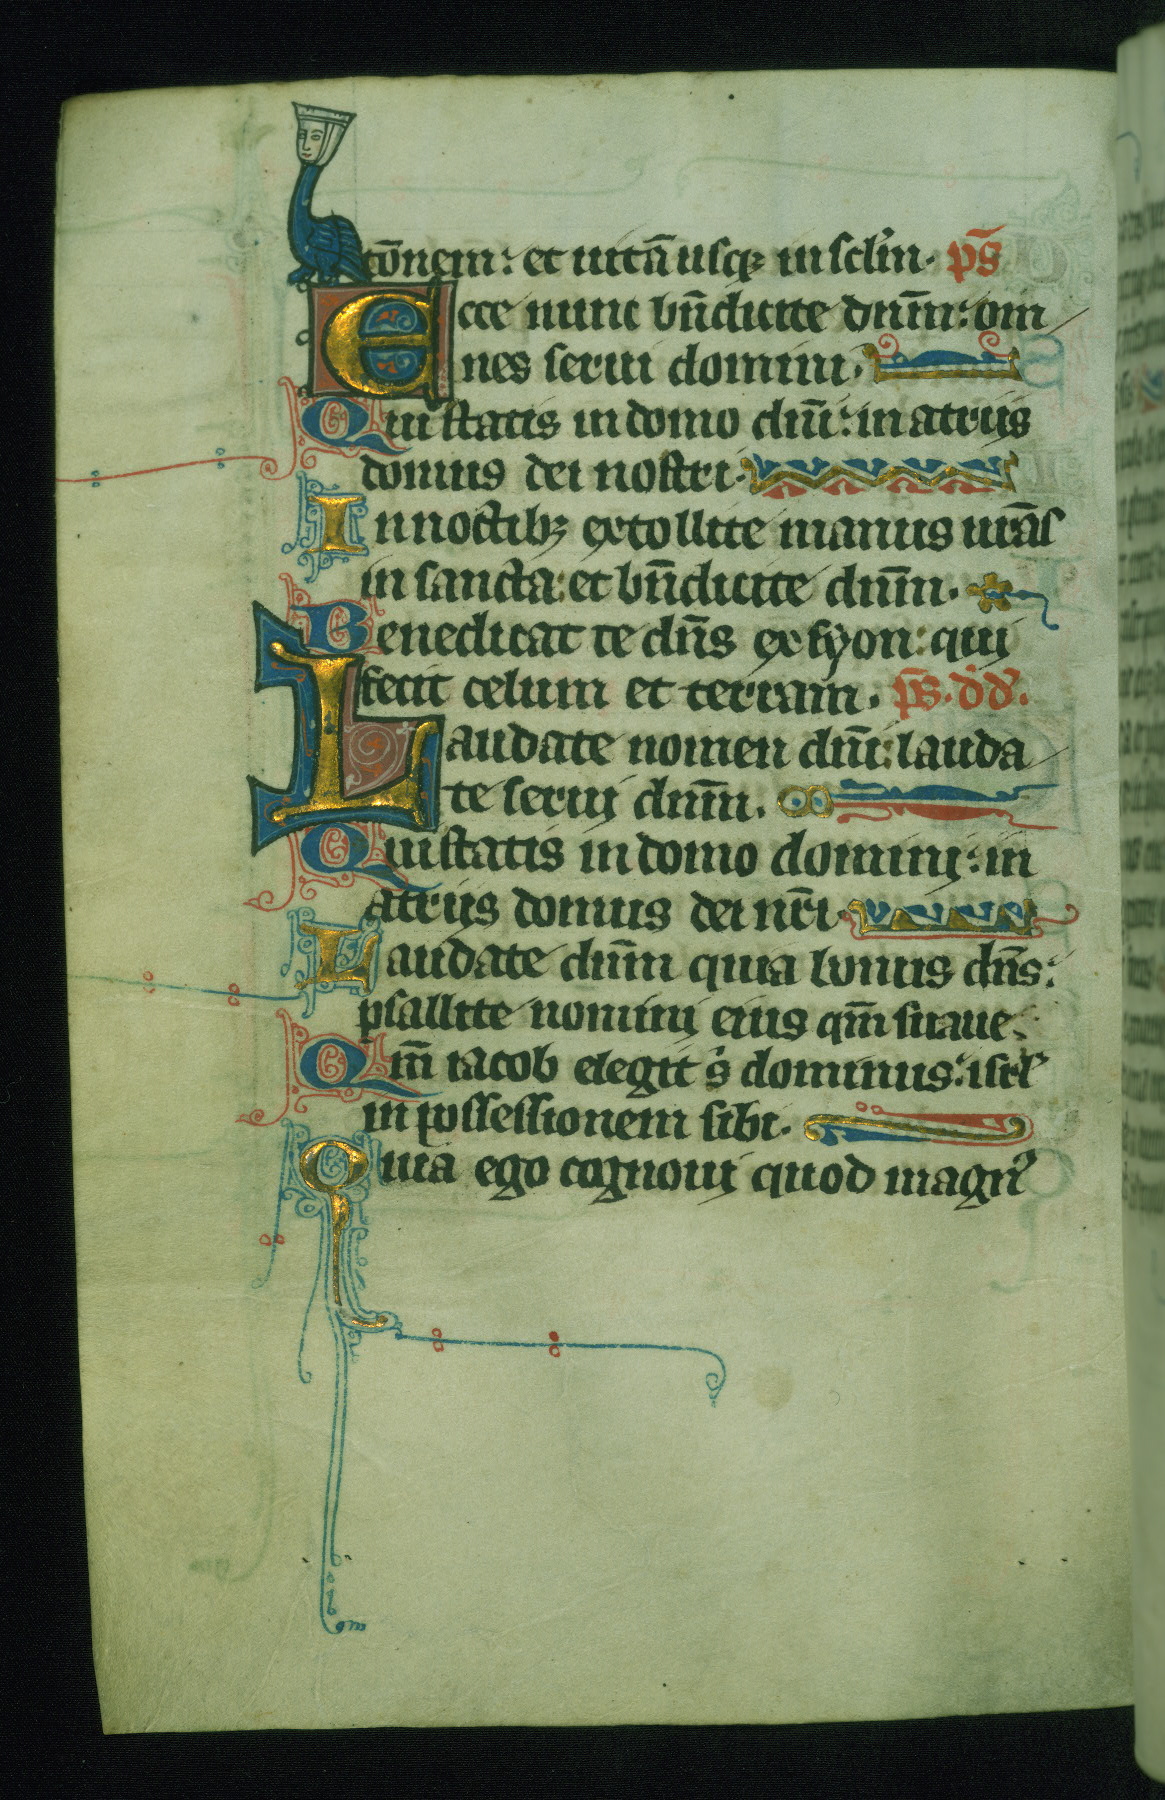 cōnem: et uitā usq; in sclm̄. ps̄
Ecce nunc bn̄dicite dnm̄: om
nes serui domini.
Qui statis in domo dnī: in atrijs
domus dei nostri.
In noctib; extollite manus urās
in sancta: et bn̄dicite dnm̄.
Benedicat te dn̄s ex syon: qui
fecit celum et terram. ps̄. dd̄.
Laudate nomen dnī: lauda
te serui dnm̄.
Qui statis in domo domini: in
atrijs domus dei nr̄i.
Laudate dnm̄ quia bonus dn̄s:
psallite nomini eius qm̄ suaue.
Qm̄ iacob elegit s dominus: isrl
in possessionem sibi.
Quia ego cognoui quod magn